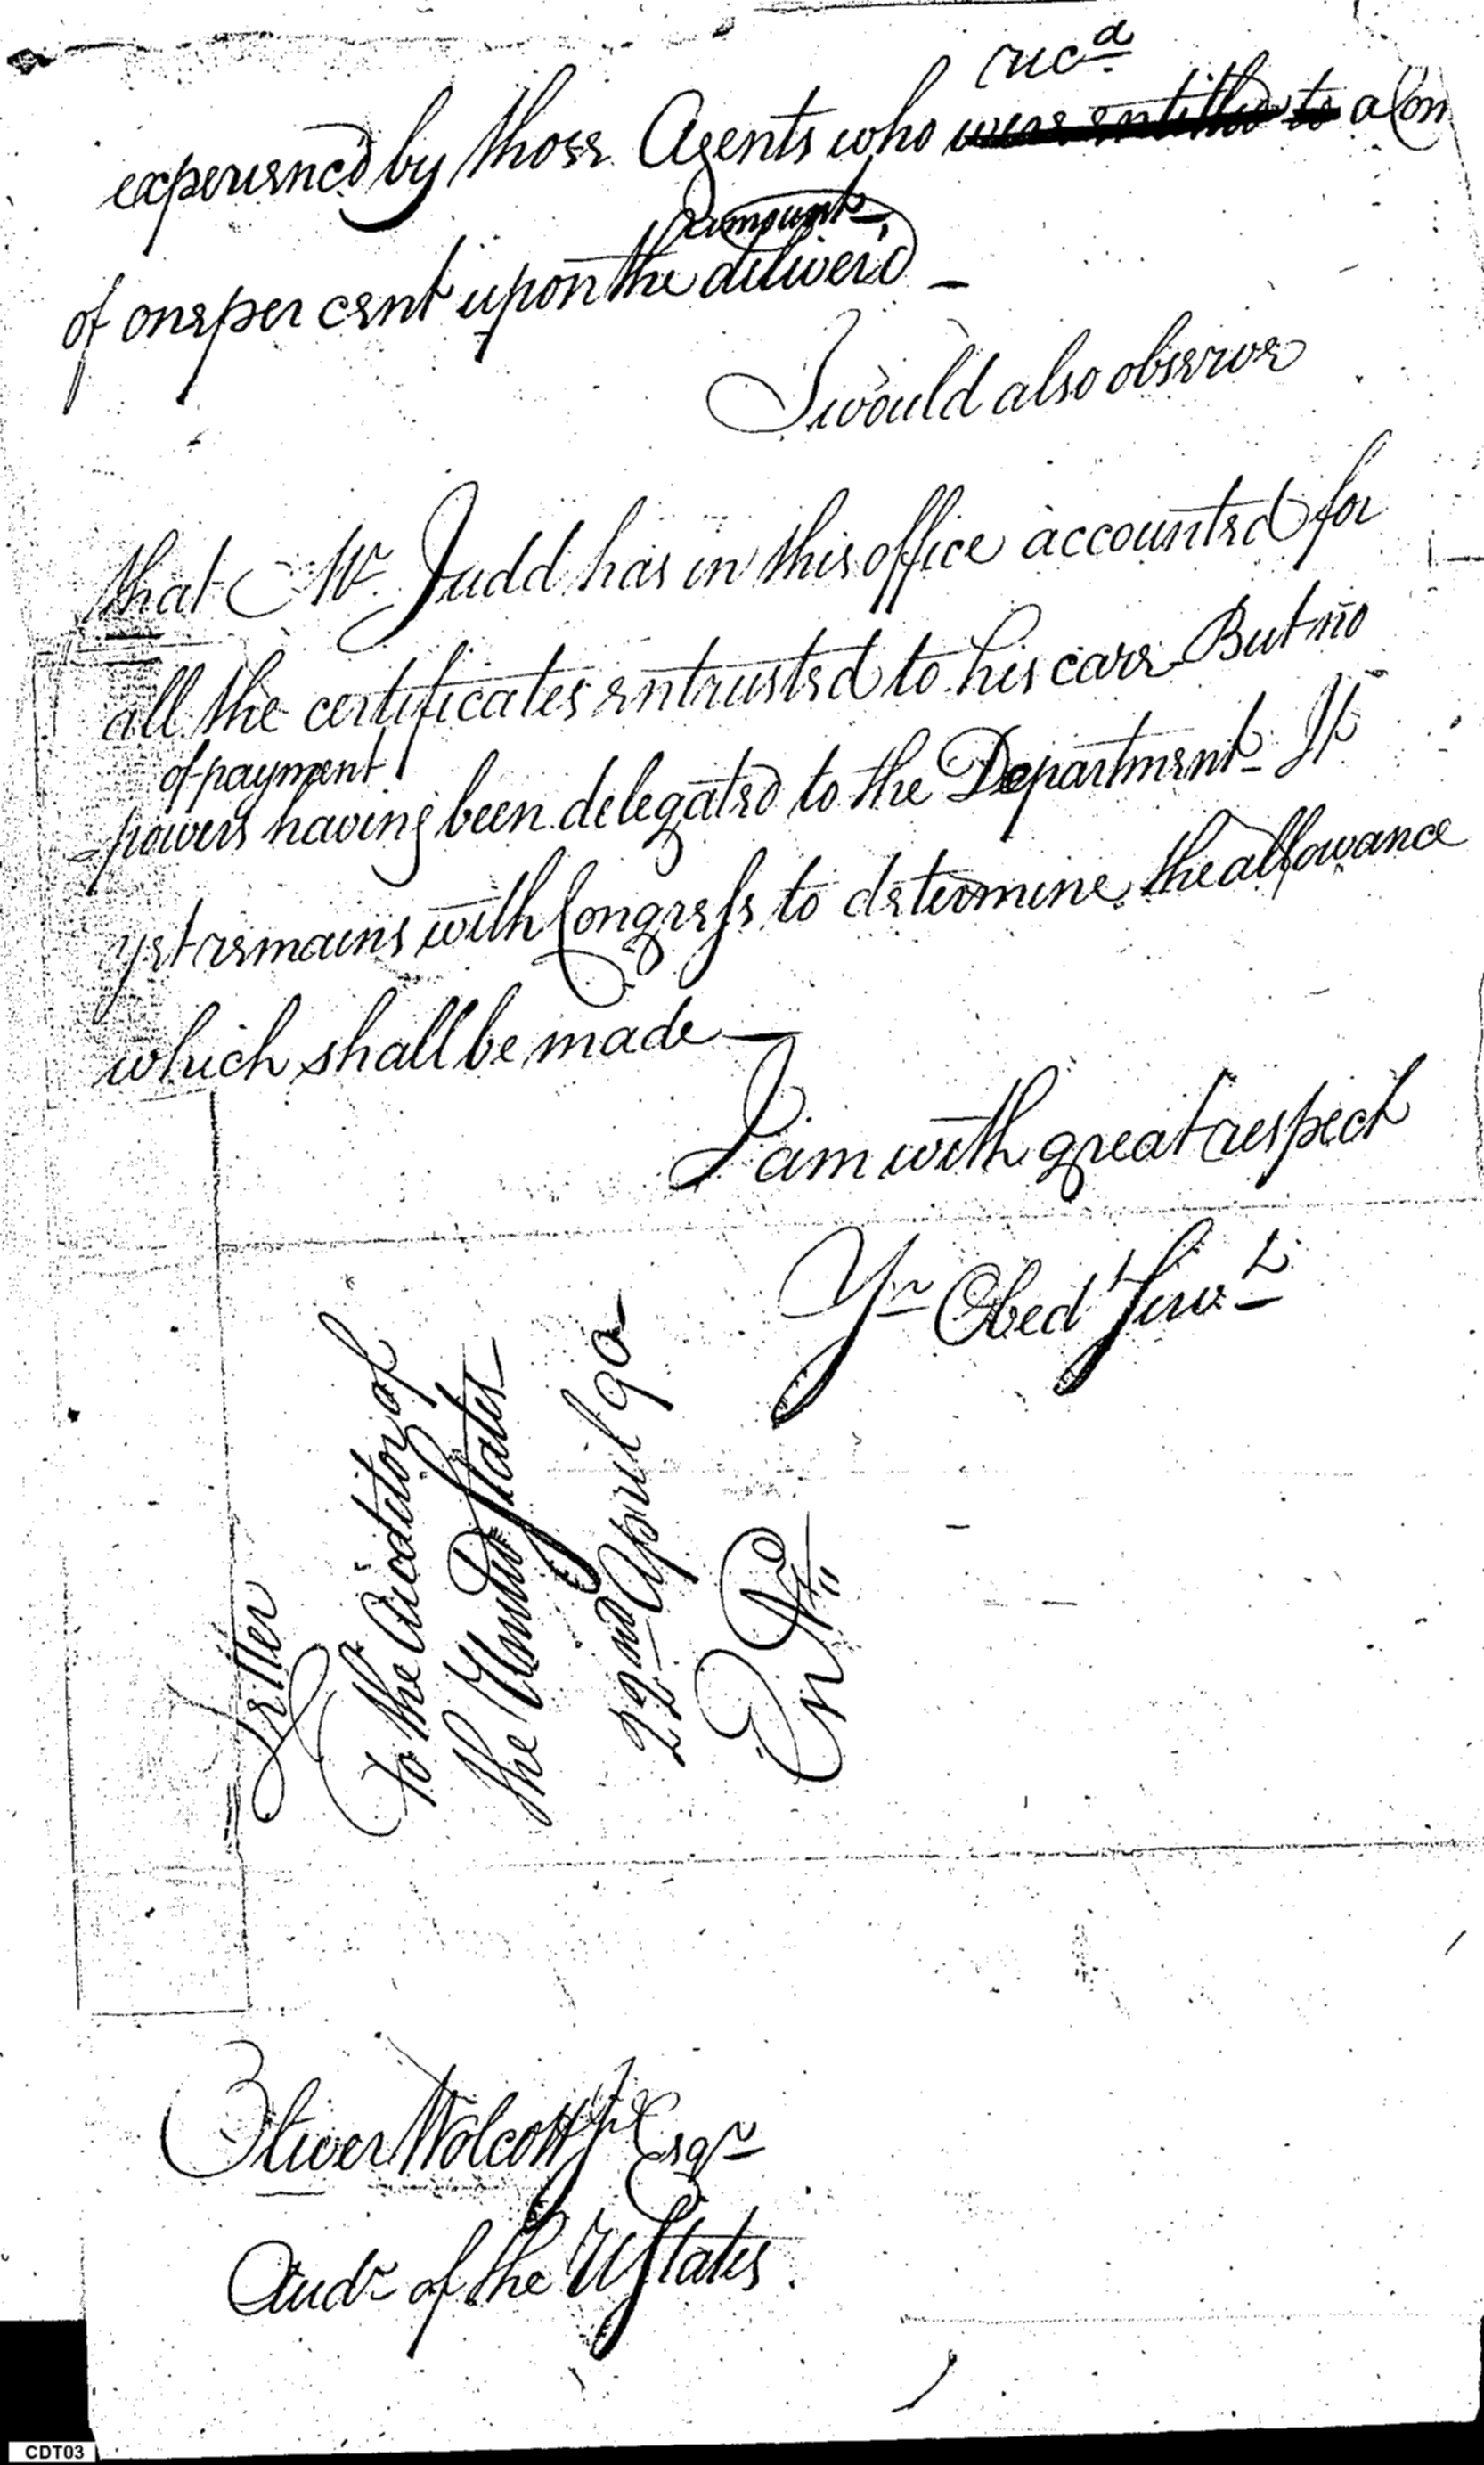 recd
experienced by those Agents who were entitled to a Com
amount
of one per cent upon the deliver'd —
I would also observe
that Mr. Judd has in this office accounted for
all the certificates entrusted to his care - But no
of payment
powers having been delegated to the Department - It
yet remains with Congress to determine the allowance
which shall be made —
I am with great respect
Yr Obed Servt
Letter
To the Auditor of
the United States
22nd April 90
En
Oliver Wolcott Jr Esqr
Audr of the UStates.
CDT03